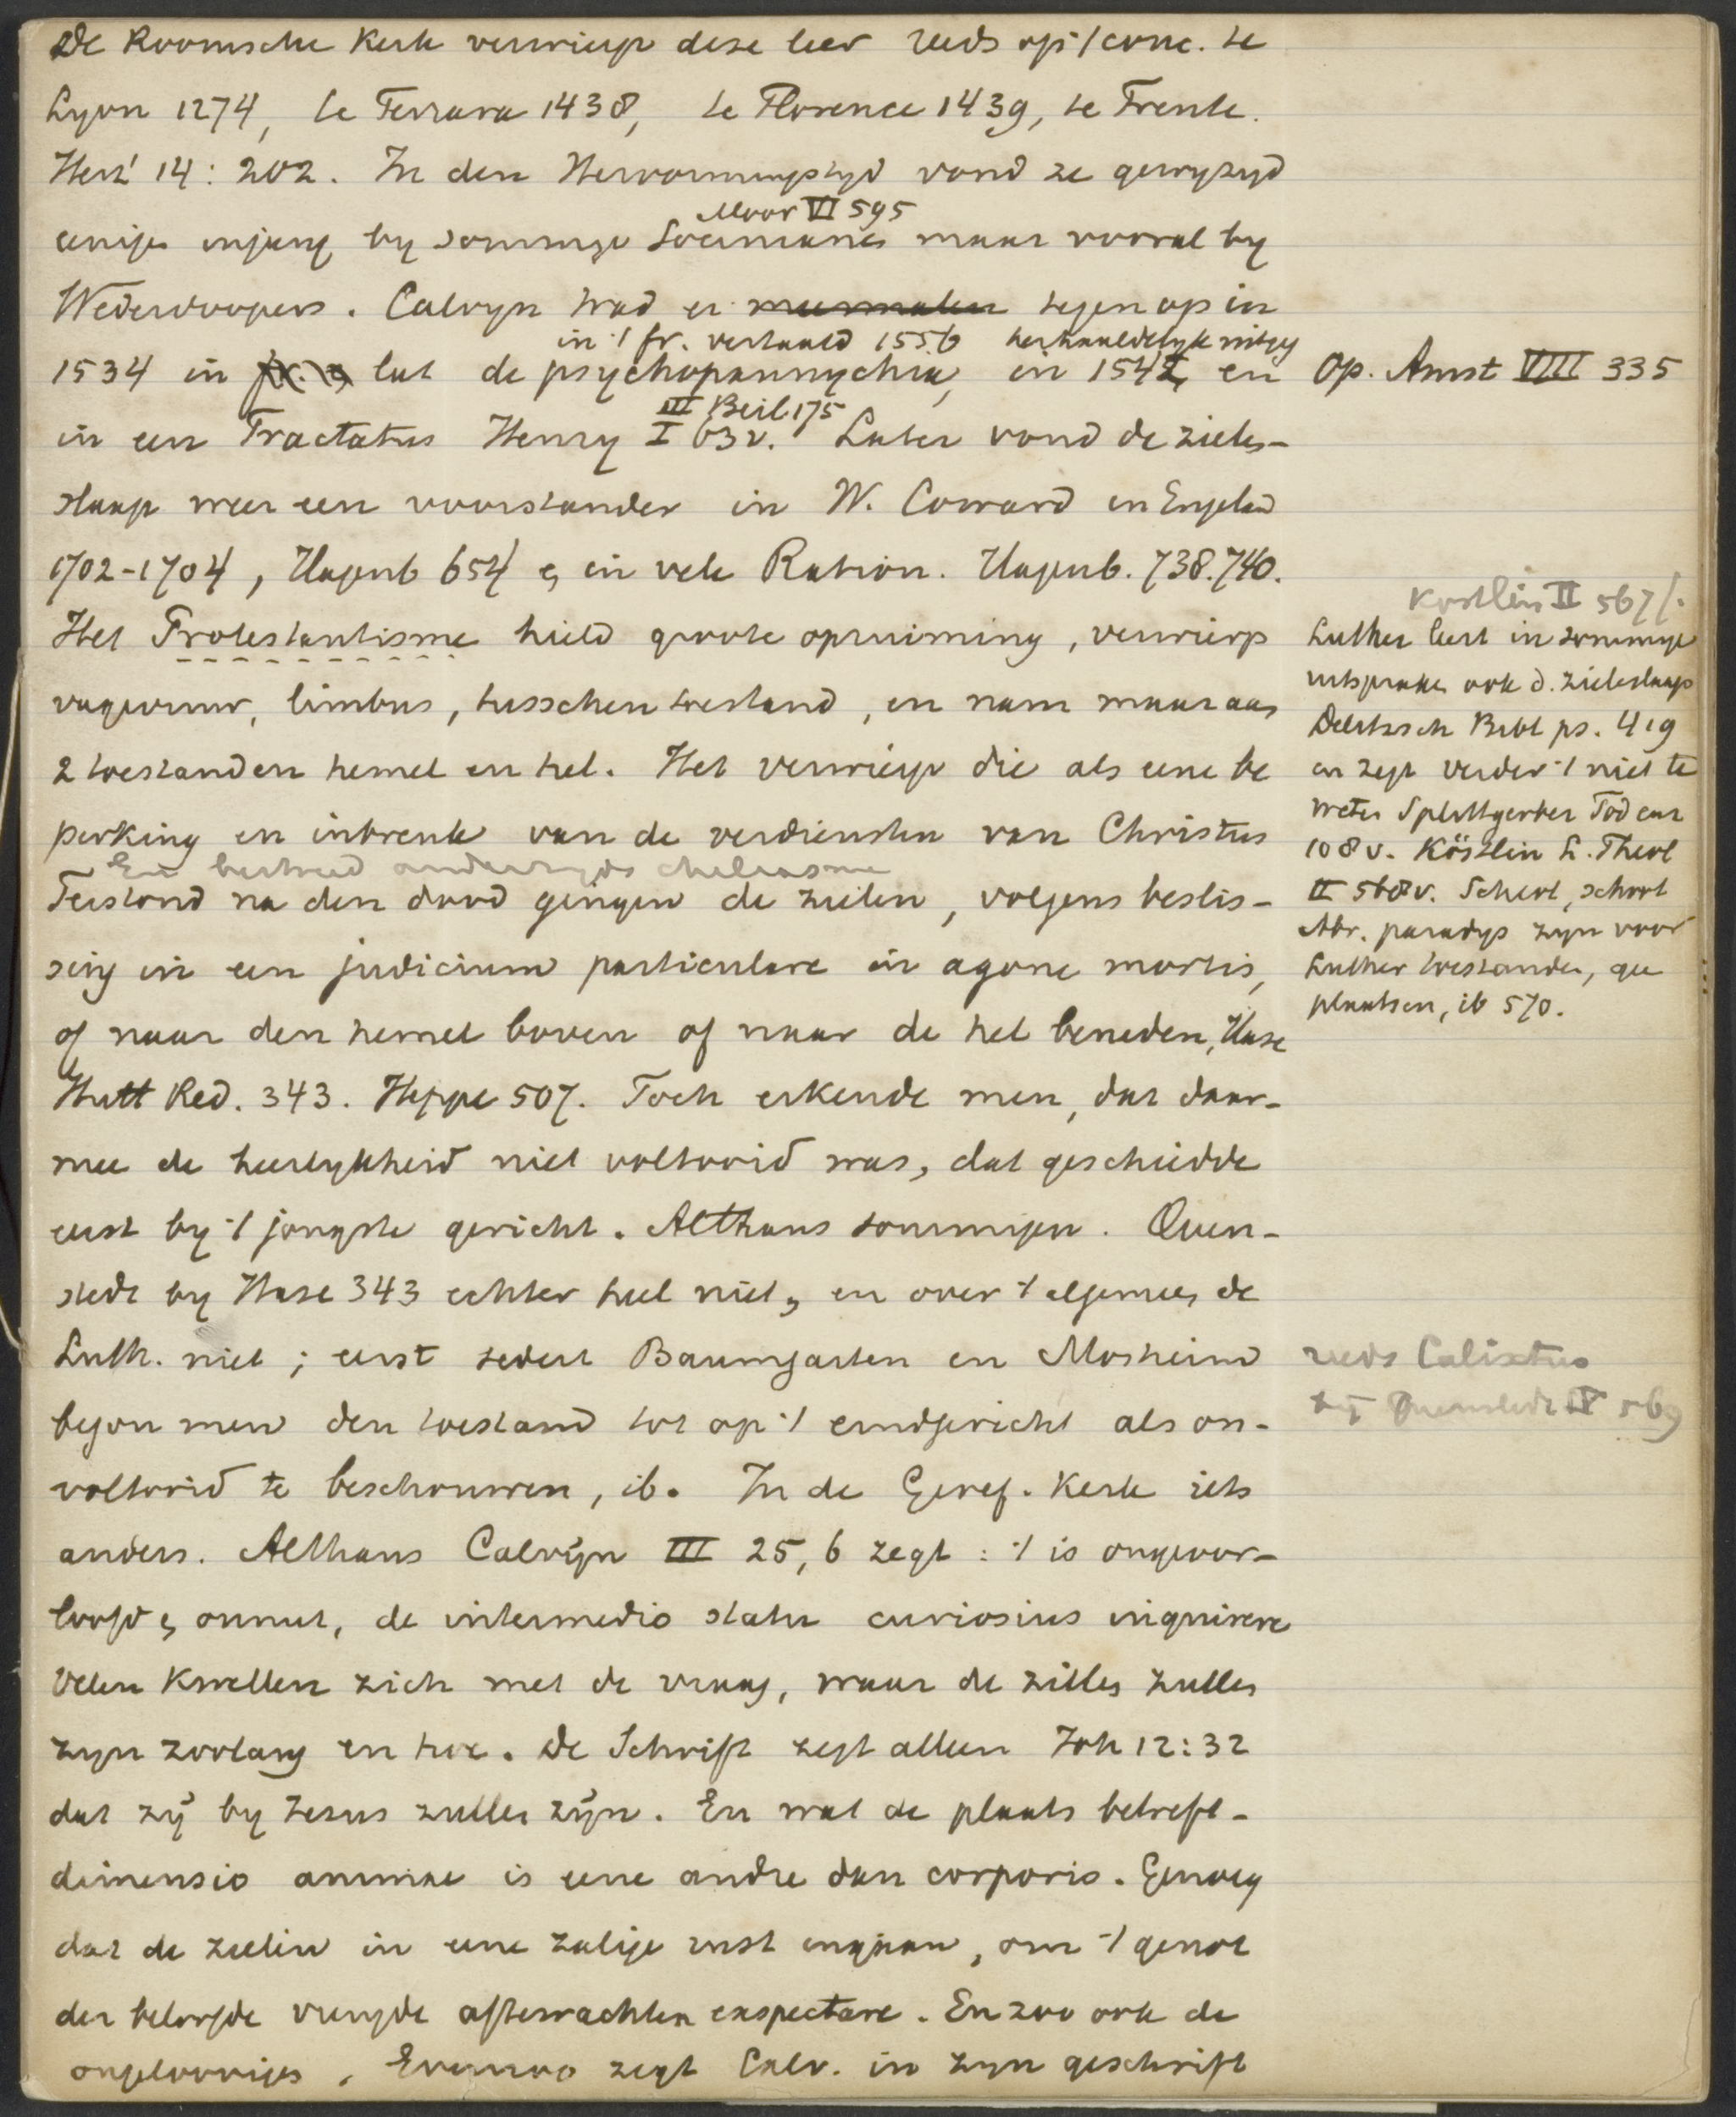 De Roomsche Kerk verwierp deze leer reeds op 't conc. te
Lyon 1274, te Ferrara 1438, te Florence 1439, te Trente.
Herz' 14: 202. In den Hervormingstyd vond ze gewyzyd
Moor VI 595
eenige ingang by sommige Socinianen maar vooral by
Wederdoopers. Calvyn trad er meermalen tegen op in
in 't fr. vertaald 1556 herhaaldelyk uitgeg
1534 in lat de psychopannychia, in 1542, en
III Beil 175
in een Tractatus Henry I 63v. Later vond de ziele-
slaap weer een voorstander in W. Coward in Engeland
1702-1704, Hagenb 654 en in vele Ration. Hagenb. 738.740.
Het Protestantisme hield groote opruiming, verwierp
vagevuur, limbus, tusschentoestand, en nam maar aan
2 toestanden hemel en hel. Het verwierp die als eene be
perking en inbreuk van de verdiensten van Christus
En bestreed anderzyds chiliasme
Terstond na den dood gingen de zielen, volgens beslis-
sing in een judicium particulare in agone mortis,
of naar den hemel boven of naar de hel beneden, Hase
Hutt Red. 343. Heppe 507. Toch erkende men, dat daar-
mee de heerlykheid niet voltooid was, dat geschiedde
eerst by 't jongste gericht. Althans sommigen. Quen-
stedt by Hase 343 echter heel niet, en over 't algemeen de
Luth. niet; eerst sedert Baumgarten en Mosheim
begon men den toestand tot op 't eindgericht als on-
voltooid te beschouwen, ib. In de Geref. Kerk iets
anders. Althans Calvijn III 25, 6 zegt: 't is ongeoor-
loofd en onnut, de intermedio statu curiosius inquirere
Velen kwellen zich met de vraag, waar de zielen zullen
zyn zoolang en hoe. De Schrift zegt alleen Joh 12:32
dat zij by Jezus zullen zijn. En wat de plaats betreft-
dimensio animae is eene andre dan corporis. Genoeg
dat de zielen in eene zalige rust ingaan, om 't genot
der beloofde vreugde afterwachten exspectare. En zoo ook de
ongeloovigen. Evenzoo zegt Calv. in zyn geschrift
Op. Amst VIII 335
Kostlin II 567/.
Luther leert in sommige
uitspraken ook d. zieleslaap
Delitzsch Bibl ps. 419
en zegt verder 't niet te
weten Splittgerber Tod enz
108 v. Köstlin L. Theol
II 568v. Scheol, schoot
Abr. paradys zyn voor
Luther toestanden, gee
plaatsen, ib 570.
reeds Calixtus
bij Quenstedt IV 569